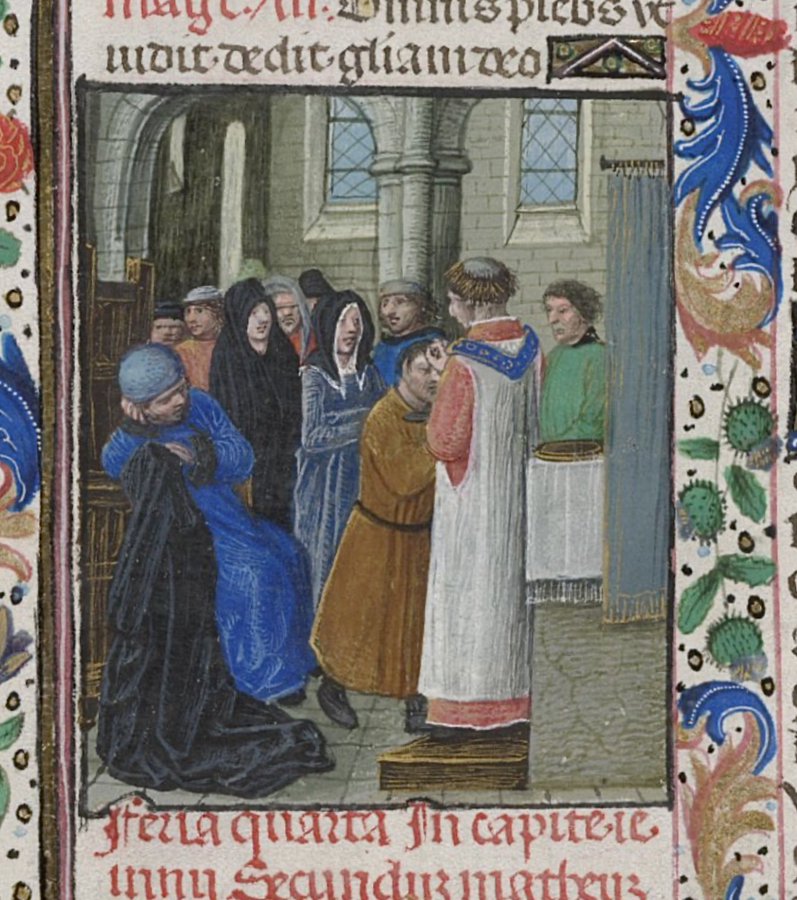 Omnis plebs vt
uidit dedit gliam deo
Feria quarta In capite ie
iunii Secunduz matheuz